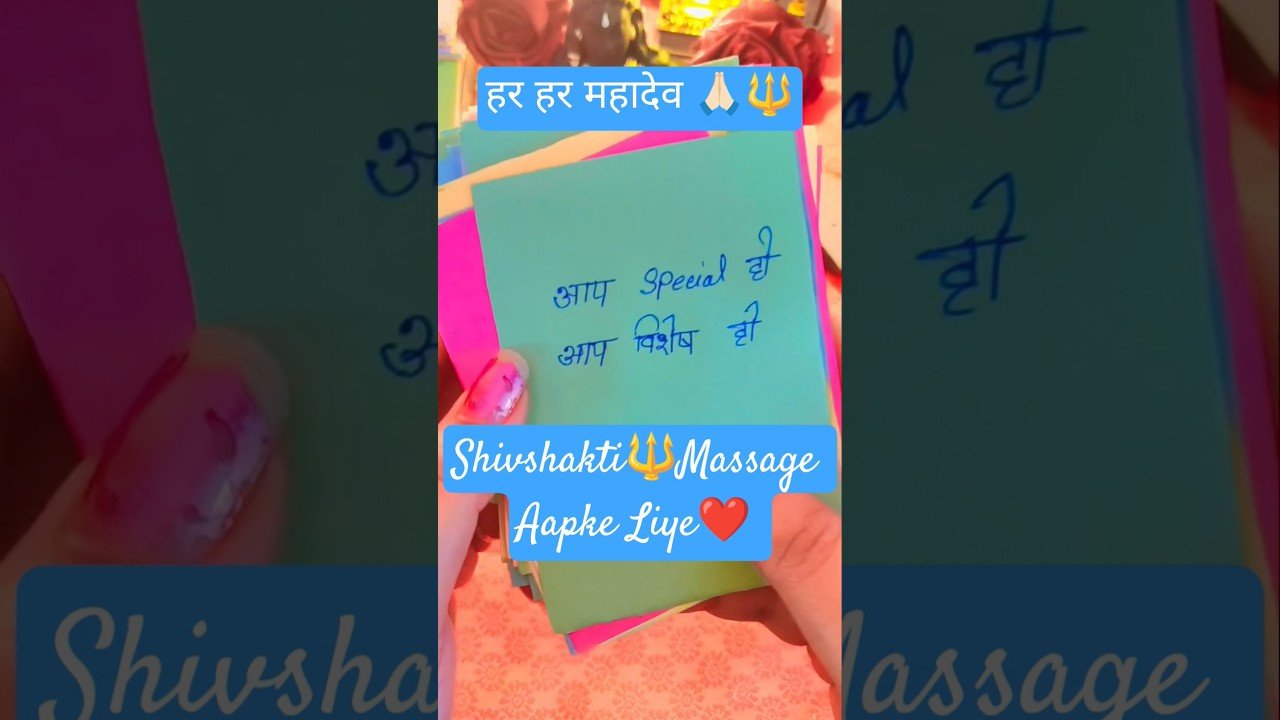 हर हर महादेव 🙏🏻🔱
आप special हो
आप विशेष हो
Shivshakti🔱Massage
Aapke Liye❤️